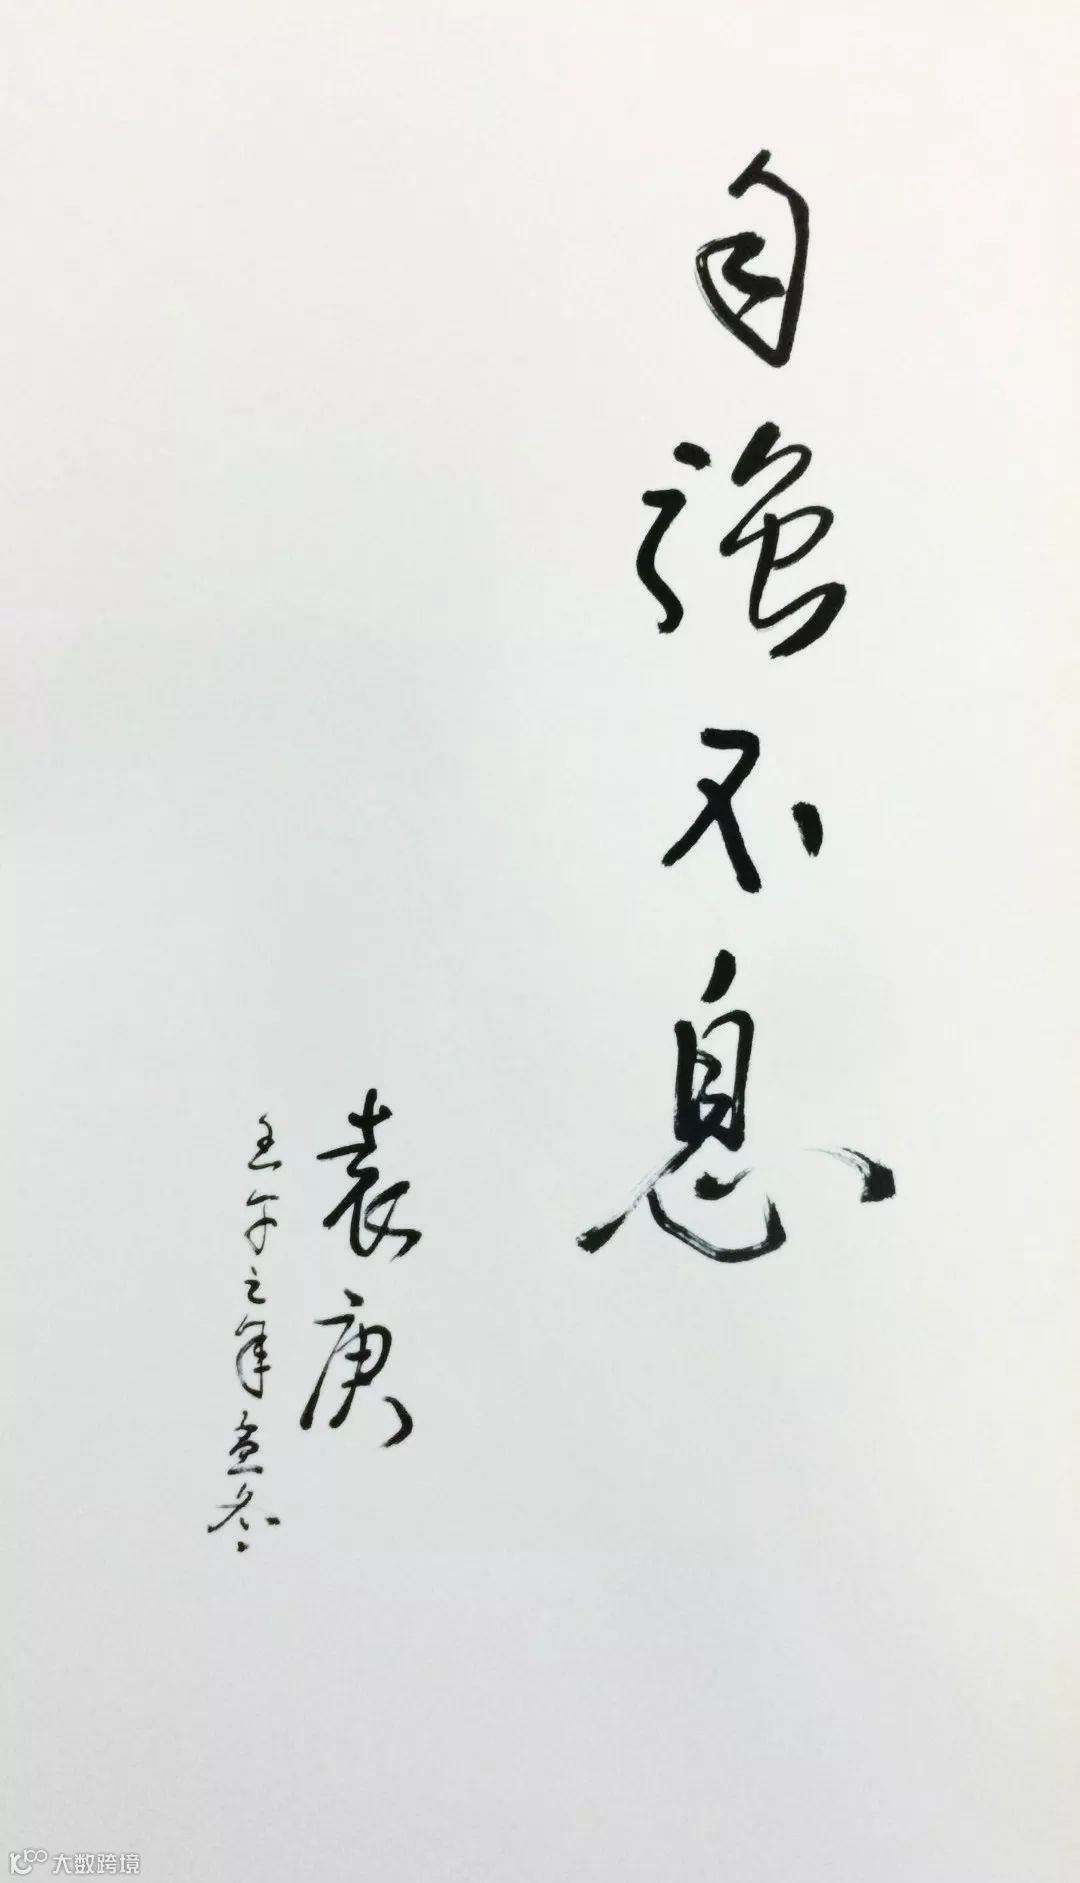 自强不息
袁庚
壬午之年孟冬
大数跨境